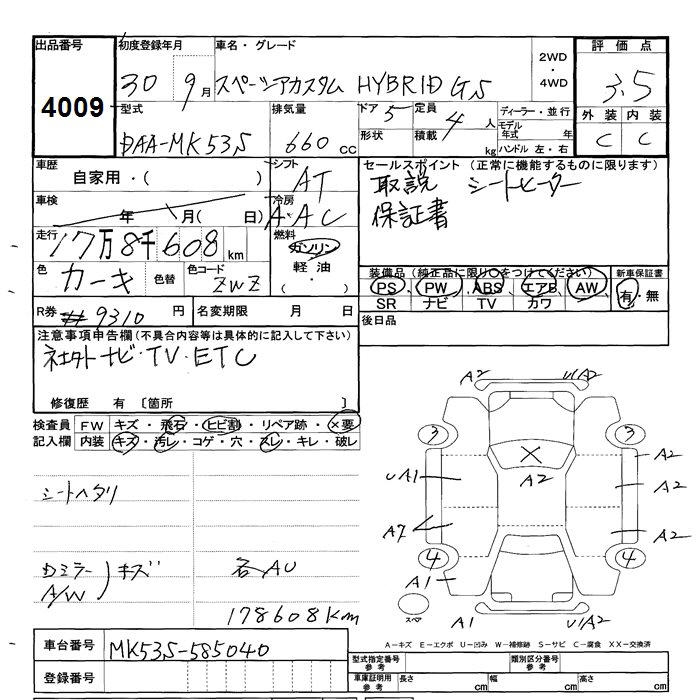 出品番号 初度登録年月 車名・グレード 2WD・4WD 評価点
4009 30 9月 スペーシアカスタム HYBRID GS 3.5
型式 排気量 ドア 5 定員 4人 ディーラー・並行 外装 内装
DAA-MK53S 660cc 形状 積載 kg モデル年式 年 ハンドル 左・右 C C
車歴 自家用・( ) シフト AT
セールスポイント (正常に機能するものに限ります)
取説 シートヒーター
保証書
車検 年 月( 日) 冷房 AAC
走行 17万8千608km 燃料 ガソリン・軽油・( )
色 カーキ 色替 色コード ZWZ
装備品 (純正品に限り○をつけてください) 新車保証書
PS PW ABS エアB AW 有・無
SR ナビ TV カワ
R券 9310円 名変期限 月 日
後日品
注意事項申告欄(不具合内容等は具体的に記入して下さい)
社外ナビ・TV・ETC
修復歴 有 〔箇所 〕
検査員 FW キズ・飛石・ヒビ割・リペア跡・×要
記入欄 内装 キズ・汚レ・コゲ・穴・スレ・キレ・破レ
シートヘタリ
Dミラー
A/W
キズ
各AU
178608km
A2 U1A2
3 3
A2
A2
A2
UA1
A2
A7
A2
4 4
A1
スペア
A1 U1A2
A-キズ E-エクボ U-凹み W-補修跡 S-サビ C-腐食 XX-交換済
車台番号 MK53S-585040
登録番号
型式指定番号 参考 類別区分番号 参考
車庫証明用 参考 長さ cm 幅 cm 高さ cm